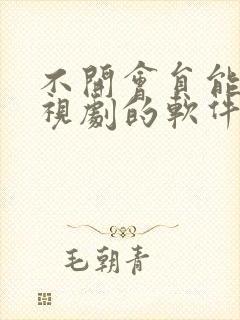 不開會員能
視劇的軟件
毛朝青